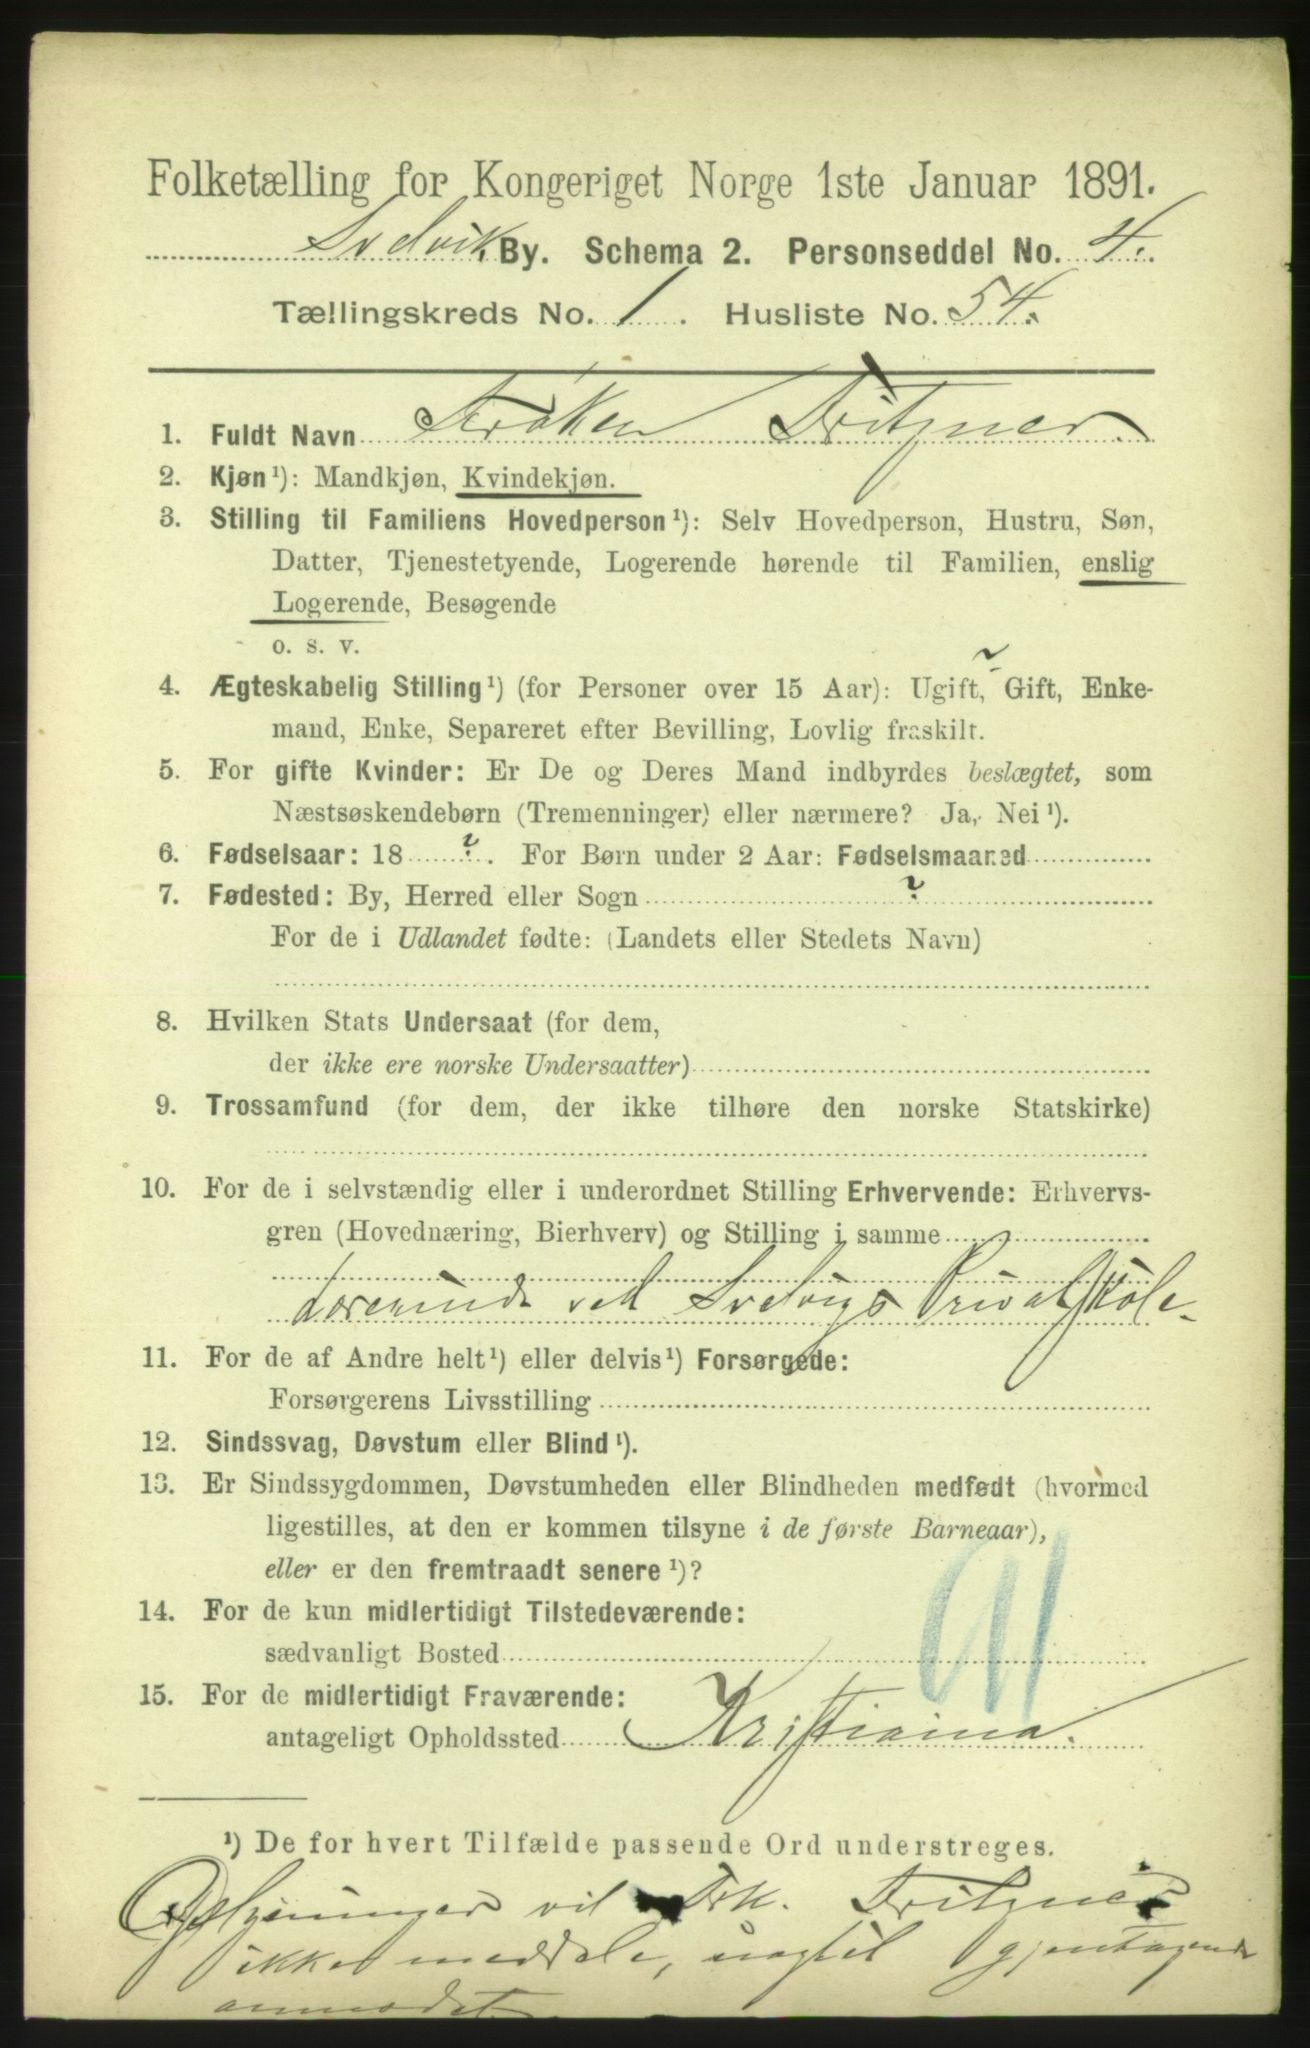 Folketælling for Kongeriget Norge 1ste Januar 1891.
Svelvik By. Schema 2. Personseddel No. 4.
Tællingskreds No. 1. Husliste No. 54.
1. Fuldt Navn Frøken Fritzner.
2. Kjøn¹): Mandkjøn, Kvindekjøn.
3. Stilling til Familiens Hovedperson¹): Selv Hovedperson, Hustru, Søn,
Datter, Tjenestetyende, Logerende hørende til Familien, enslig
Logerende, Besøgende
o. s. v.
?
4. Ægteskabelig Stilling¹) (for Personer over 15 Aar): Ugift, Gift, Enke-
mand, Enke, Separeret efter Bevilling, Lovlig fraskilt.
5. For gifte Kvinder: Er De og Deres Mand indbyrdes beslægtet, som
Næstsøskendebørn (Tremenninger) eller nærmere? Ja, Nei¹).
6. Fødselsaar: 18 ?. For Børn under 2 Aar: Fødselsmaaned
7. Fødested: By, Herred eller Sogn ?
For de i Udlandet fødte: (Landets eller Stedets Navn)
8. Hvilken Stats Undersaat (for dem,
der ikke ere norske Undersaatter)
9. Trossamfund (for dem, der ikke tilhøre den norske Statskirke)
10. For de i selvstændig eller i underordnet Stilling Erhvervende: Erhvervs-
gren (Hovednæring, Bierhverv) og Stilling i samme
Lærerinde ved Svelvigs Privatskole.
11. For de af Andre helt¹) eller delvis¹) Forsørgede:
Forsørgerens Livsstilling
12. Sindssvag, Døvstum eller Blind¹).
13. Er Sindssygdommen, Døvstumheden eller Blindheden medfødt (hvormed
ligestilles, at den er kommen tilsyne i de første Barneaar),
eller er den fremtraadt senere¹)?
14. For de kun midlertidigt Tilstedeværende:
sædvanligt Bosted
15. For de midlertidigt Fraværende:
antageligt Opholdssted Kristiania.
¹) De for hvert Tilfælde passende Ord understreges.
Oplysninger vil Frk. Fritzner
ikke meddele, uagtet gjentagende
anmodet.